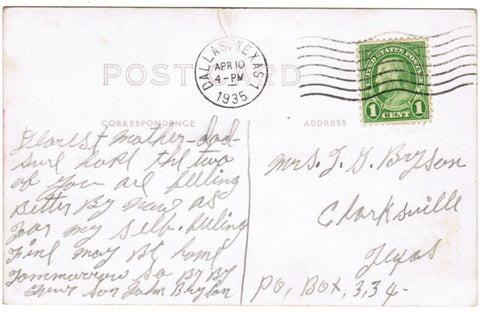 POST CARD
DALLAS, TEXAS 1
APR 10
4-PM
1935
UNITED STATES POSTAGE
1 CENT 1
CORRESPONDENCE
ADDRESS
Dearest Mother-dad-
sure hope the two
of you are feeling
Better By now as
For my self. feeling
Fine may Be home
Tommarrow so By By
Your Son John Bryson
Mrs. J. G. Bryson
Clarksville
Texas
PO, Box, 334-